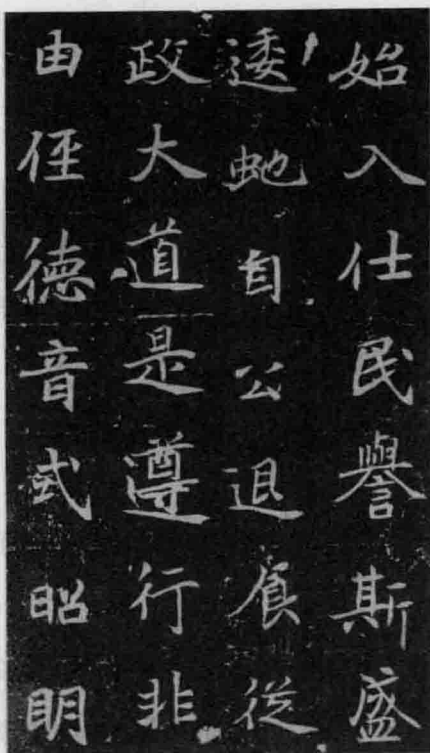 始入仕民譽斯盛
逶虵自公退食從
政大道是遵行非
由俓德音式昭明